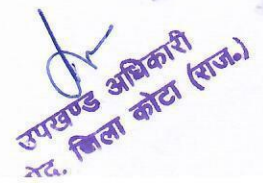 उपखण्ड अधिकारी
जिला कोटा (राज.)